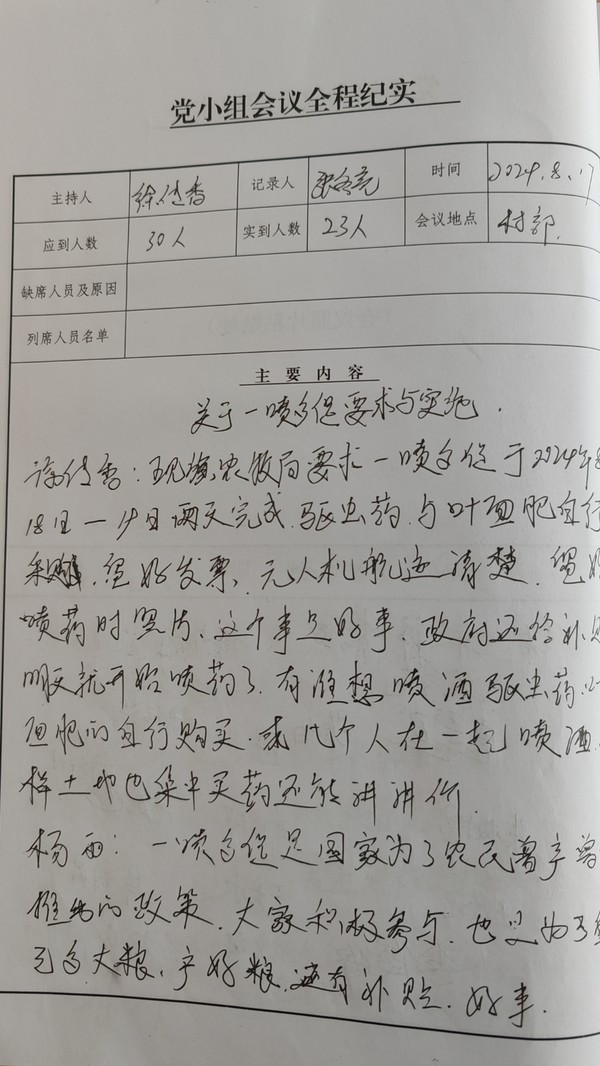 党小组会议全程纪实
主持人 徐传香 记录人 时间 2024.8.17
应到人数 30人 实到人数 23人 会议地点 村部.
缺席人员及原因
列席人员名单
主要内容
关于一喷多促要求与实施.
徐传香:现镇农牧局要求一喷多促于2024年8
18日一19日两天完成.驱虫药.与叶面肥自行
采购.留好发票、无人机航迹清楚.留好
喷药时照片、这个事是好事.政府还给补贴
明天就开始喷药了.有谁想喷洒驱虫药.叶
面肥的自行购买.或几个人在一起喷洒.
样土地也集中买药还能讲讲价.
杨雨:一喷多促是国家为了农民增产增
推出的政策.大家积极参与.也是为了
已多大粮、产好粮.还有补贴.好事.